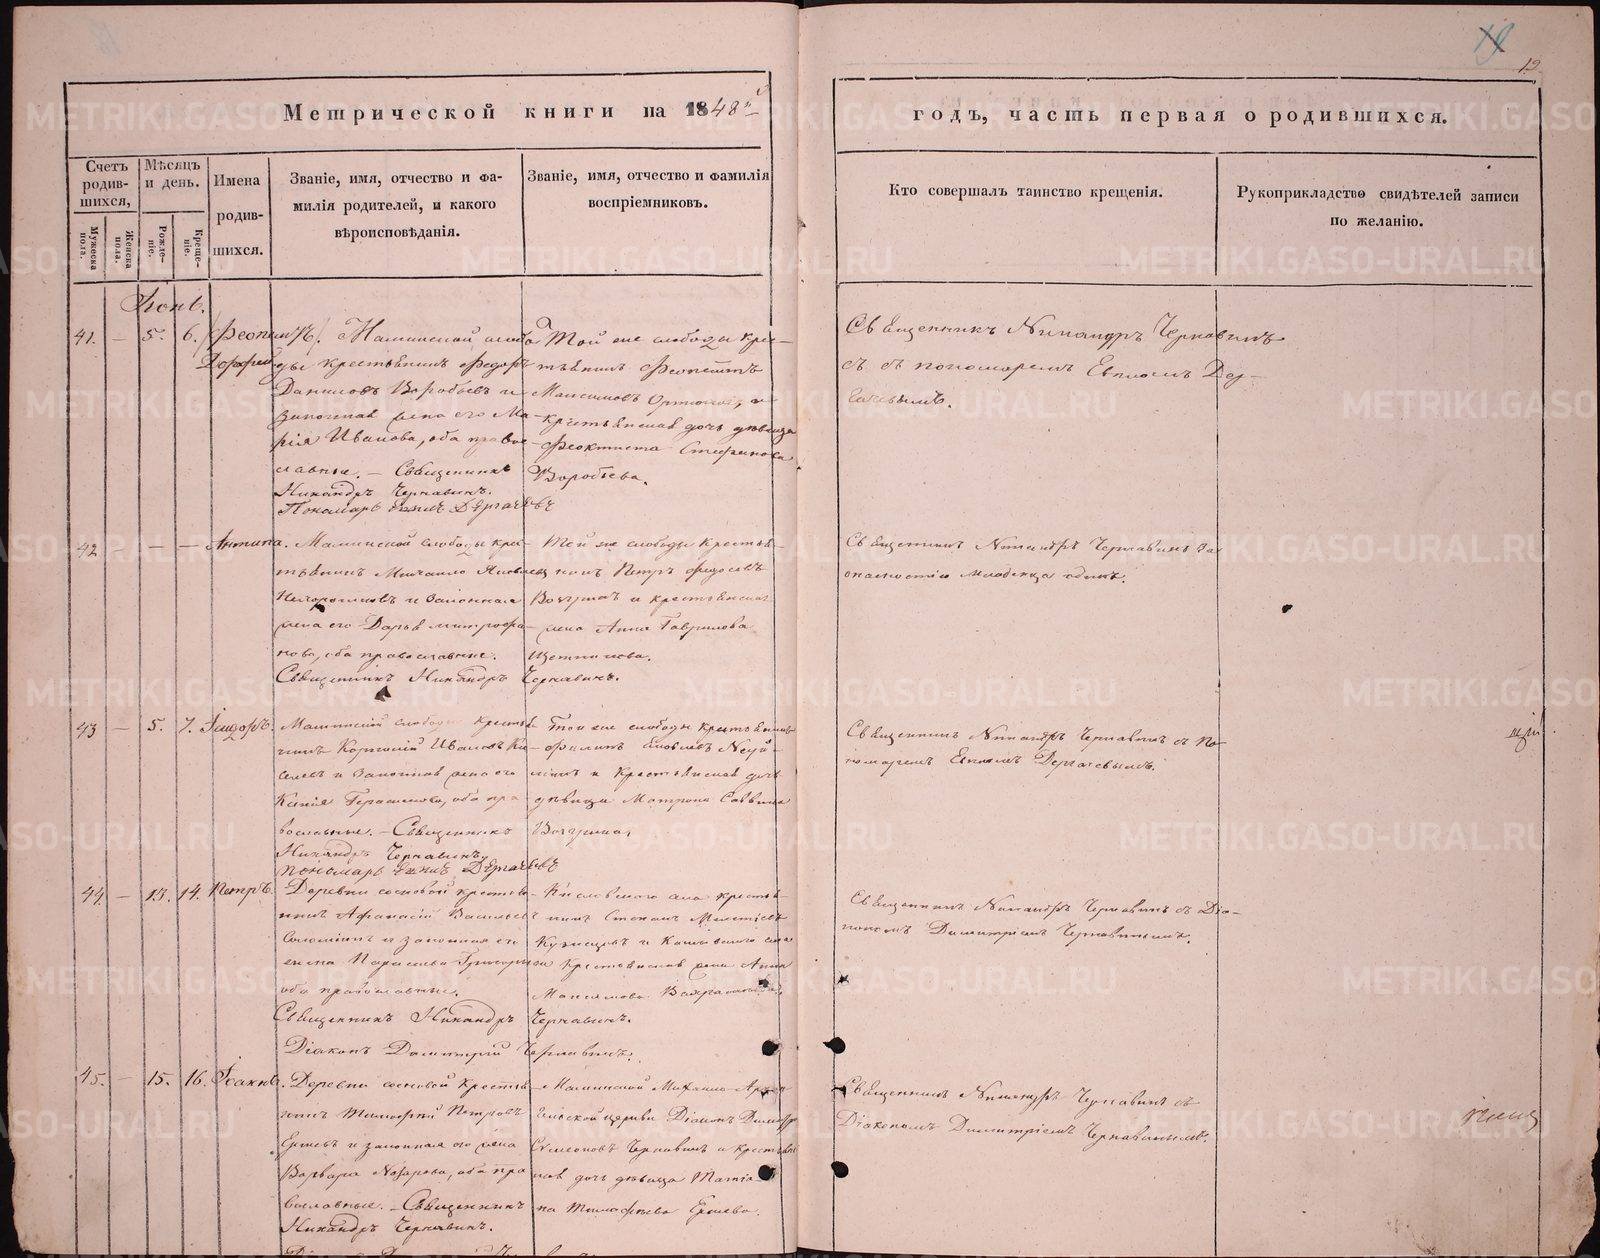 19
12
Метрической книги на 1848й
годъ, часть первая о родившихся.
Счетъ родив-шихся,
Мужеска пола.
Женска пола.
Мѣсяцъ и день.
Рожде-ніе.
Креще-ніе.
Имена
родив-
шихся.
Званіе, имя, отчество и фа-
милія родителей, и какого
вѣроисповѣданія.
Званіе, имя, отчество и фамилія
воспріемниковъ.
Кто совершалъ таинство крещенія.
Рукоприкладство свидѣтелей записи
по желанію.
Іюнь.
41. — 5. 6.
Дорофей
Маминской слобо
ды крестьянинъ Федоръ
Даниловъ Воробьевъ и
законная жена его Ма-
рія Иванова, оба право-
славные. — Священникъ
Никандръ Чернавинъ.
Пономарь Дергачевъ
Той же слободы крес-
тьянинъ
Максимовъ и
крестьянская дочь дѣвица
Феоктиста Стефанова
Воробьева.
Священникъ Никандръ Чернавинъ
съ пономаремъ Дер-
гачевымъ.
42 — — — Антипа.
Маминской слободы крес-
тьянинъ Михаило Яковлевъ
и законная
жена его Дарья Митрофа-
нова, оба православные.
Священникъ Никандръ Чернавинъ.
Той же слободы крестья-
нинъ Петръ Федосѣевъ
и крестьянская
жена Анна Гаврилова
Щетникова.
Священникъ Никандръ Чернавинъ за
опасностію младенца одинъ.
43 — 5. 7. Ѳеодоръ.
Маминской слободы крестья-
нинъ Корнилій Ивановъ Ки-
селевъ и законная жена его
Ксенія Герасимова, оба пра-
вославные. — Священникъ
Никандръ Чернавинъ,
Пономарь Дергачевъ
Той же слободы крестьянинъ
Филипъ Яковлевъ
и крестьянская дочь
дѣвица Матрона Саввина
Священникъ Никандръ Чернавинъ съ по-
номаремъ Дергачевымъ.
44. — 13. 14. Петръ.
Деревни Сосновой крестья-
нинъ Афанасій Васильевъ
и законная его
жена Параскева Григорьева
оба православные.
Священникъ Никандръ Чернавинъ.
Діаконъ Димитрій Чернавинъ.
села крестья-
нинъ Степанъ
Кузнецовъ и села
крестьянская жена Анна
Максимова
Священникъ Никандръ Чернавинъ съ Діа-
кономъ Димитріемъ Чернавинымъ.
45. — 15. 16.
Деревни Сосновой крестья-
нинъ Тимофей Петровъ
Ершевъ и законная его жена
Варвара Назарова, оба пра-
вославные. — Священникъ
Никандръ Чернавинъ.
Маминской Михаило-Архан-
гельской церкви Діаконъ Димитрій
Симеоновъ Чернавинъ и крестьян-
ская дочь дѣвица
на Тимофѣева Ершева.
Священникъ Никандръ Чернавинъ съ
Діакономъ Димитріемъ Чернавинымъ.
METRIKI.GASO-URAL.RU